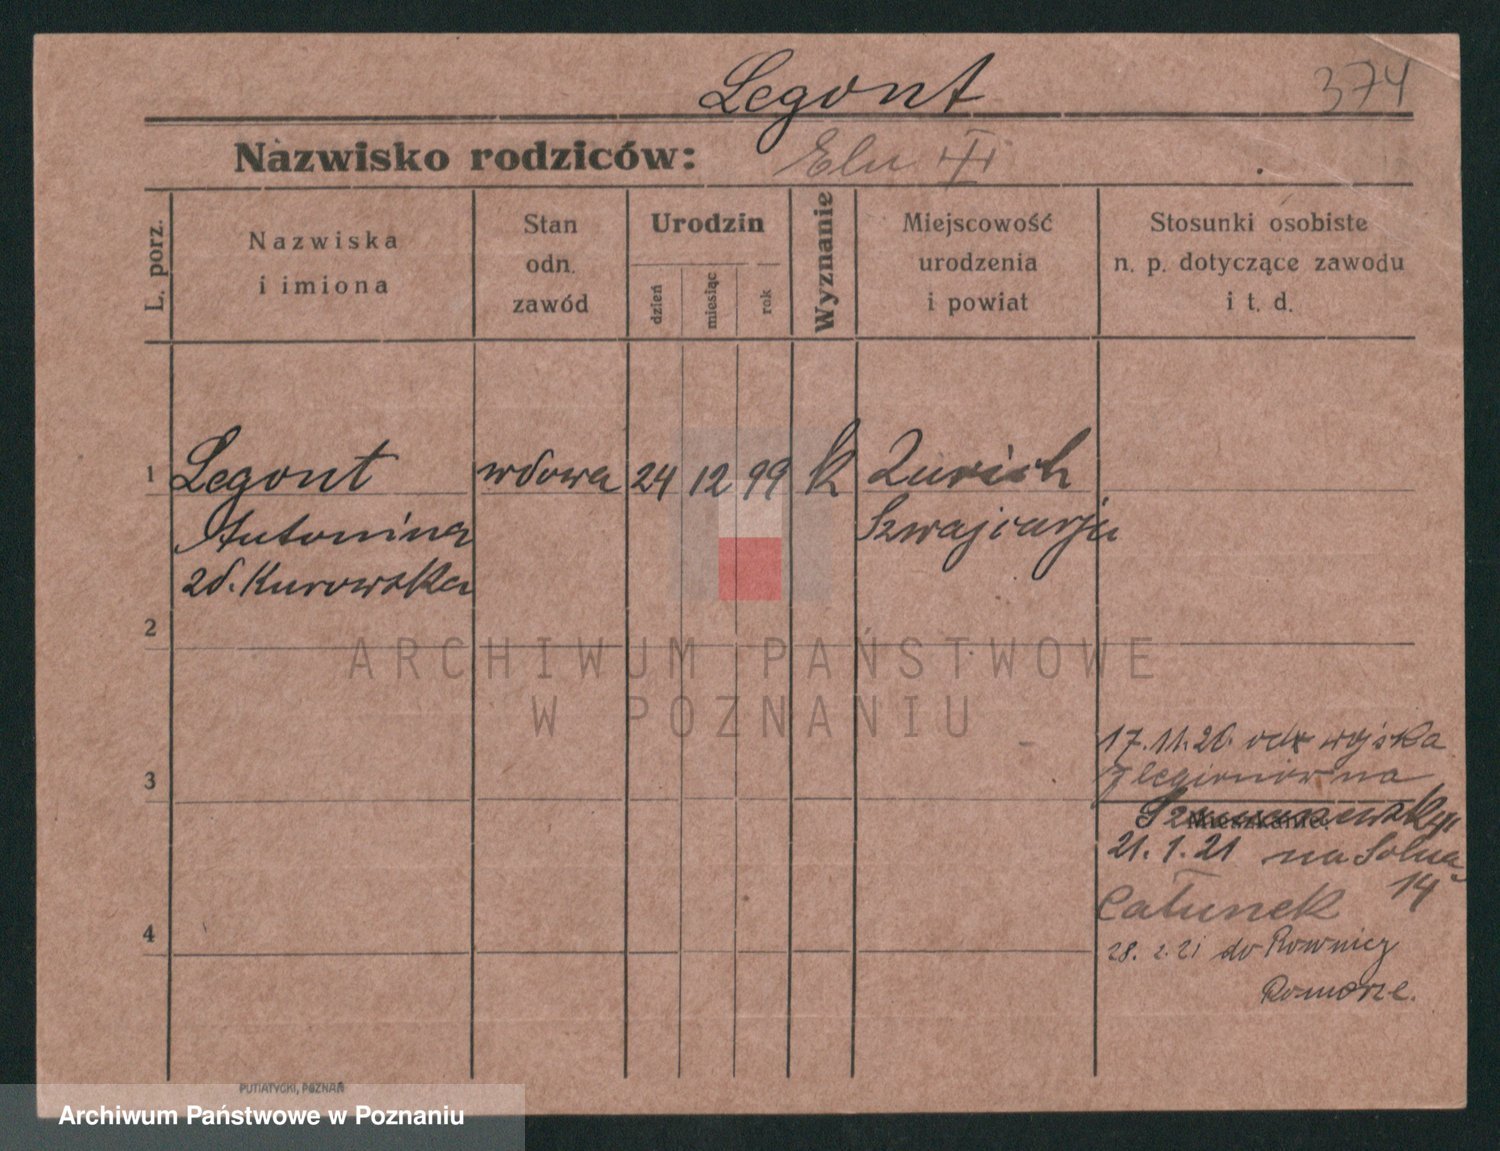 Legont
374
Nazwisko rodziców:
L. porz.
Nazwiska
i imiona
Stan
odn.
zawód
Urodzin
dzień
miesiąc
rok
Wyznanie
Miejscowość
urodzenia
i powiat
Stosunki osobiste
n. p. dotyczące zawodu
i t. d.
1
Legont wdowa 24 12 99 k Zurich
Antonina Szwajcarja
zd. Kurowska
2
ARCHIWUM PAŃSTWOWE
W POZNANIU
17.11.20. od wojska
z legionów na
3
Mieszkanie:
21.1.21 na Solną
14
Całunek
4
28. 2. 21 do
Pomorze.
PUTIATYCKI, POZNAŃ
Archiwum Państwowe w Poznaniu